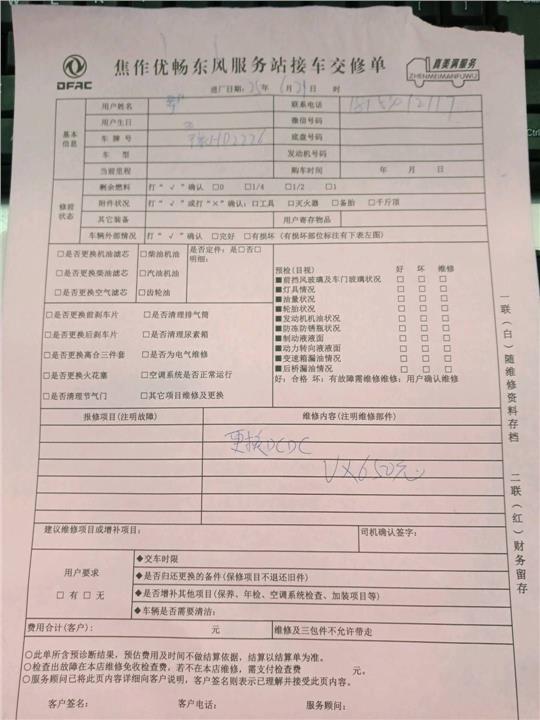 DFAC
焦作优畅东风服务站接车交修单
真美满服务
ZHENMEIMANFUWU
进厂日期：25年6月21日 时
基本信息
用户姓名 联系电话
用户生日 微信号码
车牌号 底盘号码
车型 发动机号码
当前里程 购车时间 年 月 日
修前状态
剩余燃料 打“√”确认 □0 □1/4 □1/2 □1
附件状况 打“√”或打“×”确认：口工具 口灭火器 □备胎 □千斤顶
其它装备 用户寄存物品
车辆外部情况 打“√”确认 □完好 □有损坏（有损坏部位标注有下表左图）
□是否更换机油滤芯 □柴油机油
□是否更换柴油滤芯 □汽油机油
□是否更换空气滤芯 □齿轮油
是否定件：是□否□
明细：
□是否更换前刹车片 □是否清理排气筒
□是否更换后刹车片 □是否清理尿素箱
□是否更换离合三件套 □是否为电气维修
□是否更换火花塞 □空调系统是否正常运行
□是否清理节气门 □其它项目维修及更换
预检(目视) 好 坏 维修
■前挡风玻璃及车门玻璃状况 □ □ □
■灯具情况 □ □ □
■油量状况 □ □ □
■轮胎状况 □ □ □
■发动机机油状况 □ □ □
■防冻防锈瓶状况 □ □ □
■制动液液面 □ □ □
■动力转向液液面 □ □ □
■变速箱漏油情况 □ □ □
■后桥漏油情况 □ □ □
好：合格 坏：有故障需维修维修：用户确认维修
报修项目(注明故障) 维修内容(注明维修部件)
更换DCDC
650元
建议维修项目或增补项目： 司机确认签字：
用户要求
□有 □无
◆交车时限
◆是否归还更换的备件(保修项目不退还旧件)
◆是否增补其他项目(保养、年检、空调系统检查、加装项目等)
◆车辆是否需要清洁：
费用合计(客户)： 元 维修及三包件不允许带走
○此单所含预诊断结果，预估费用及时间不做结算依据，结算以结算单为准。
○检查出故障在本店维修免收检查费，若不在本店维修，需支付检查费 元。
○服务顾问已将此页内容详细向客户说明，客户签名则表示已理解并接受此页内容。
客户签名： 客户电话： 服务顾问：
一联（白）随维修资料存档
二联（红）财务留存